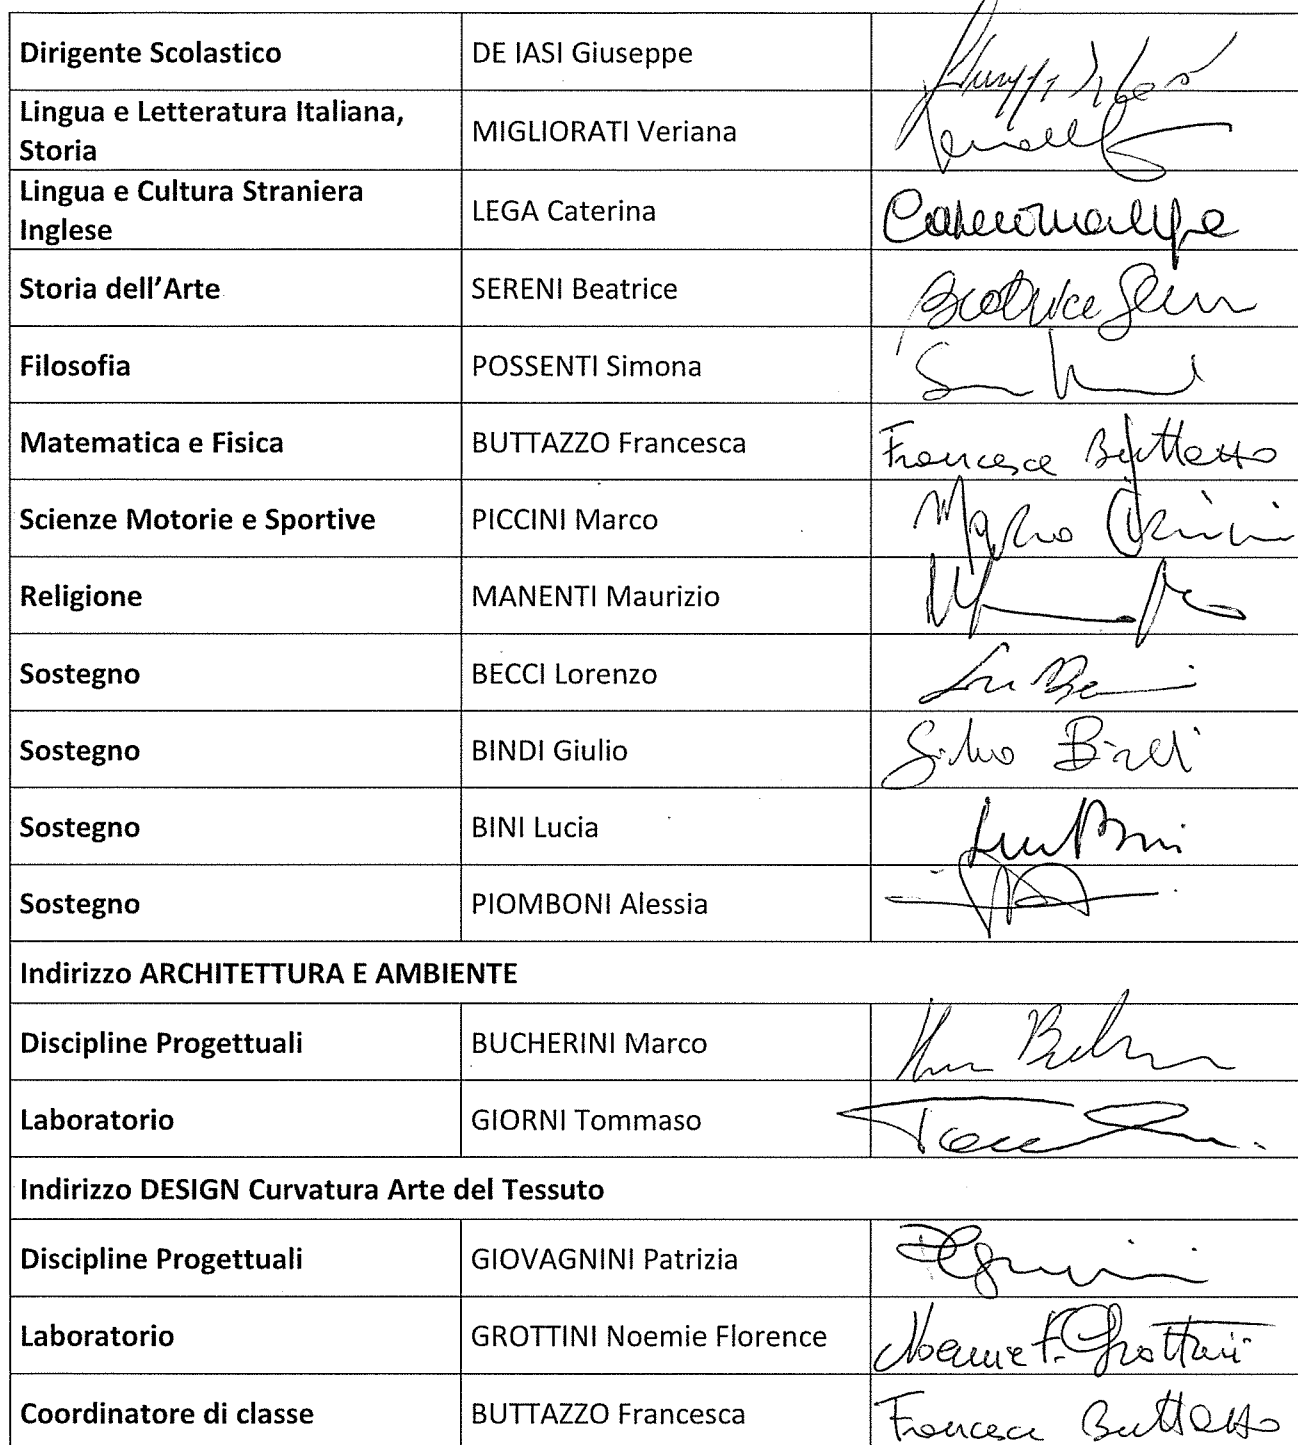 Dirigente Scolastico DE IASI Giuseppe
Lingua e Letteratura Italiana, Storia MIGLIORATI Veriana
Lingua e Cultura Straniera Inglese LEGA Caterina
Storia dell'Arte SERENI Beatrice Beatrice Sereni
Filosofia POSSENTI Simona
Matematica e Fisica BUTTAZZO Francesca Francesca Buttazzo
Scienze Motorie e Sportive PICCINI Marco Marco Piccini
Religione MANENTI Maurizio
Sostegno BECCI Lorenzo
Sostegno BINDI Giulio Giulio Bindi
Sostegno BINI Lucia
Sostegno PIOMBONI Alessia
Indirizzo ARCHITETTURA E AMBIENTE
Discipline Progettuali BUCHERINI Marco
Laboratorio GIORNI Tommaso
Indirizzo DESIGN Curvatura Arte del Tessuto
Discipline Progettuali GIOVAGNINI Patrizia
Laboratorio GROTTINI Noemie Florence Noemie F. Grottini
Coordinatore di classe BUTTAZZO Francesca Francesca Buttazzo